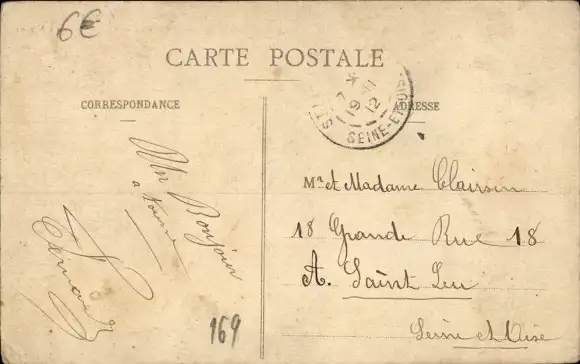 6€
CARTE POSTALE
CORRESPONDANCE
ADRESSE
7 * VI
19 12
SEINE-ET-OISE
Un Bonjour
a tous
Mr et Madame Clairsin
18 Grande Rue 18
A. Saint Leu
Seine et Oise
169